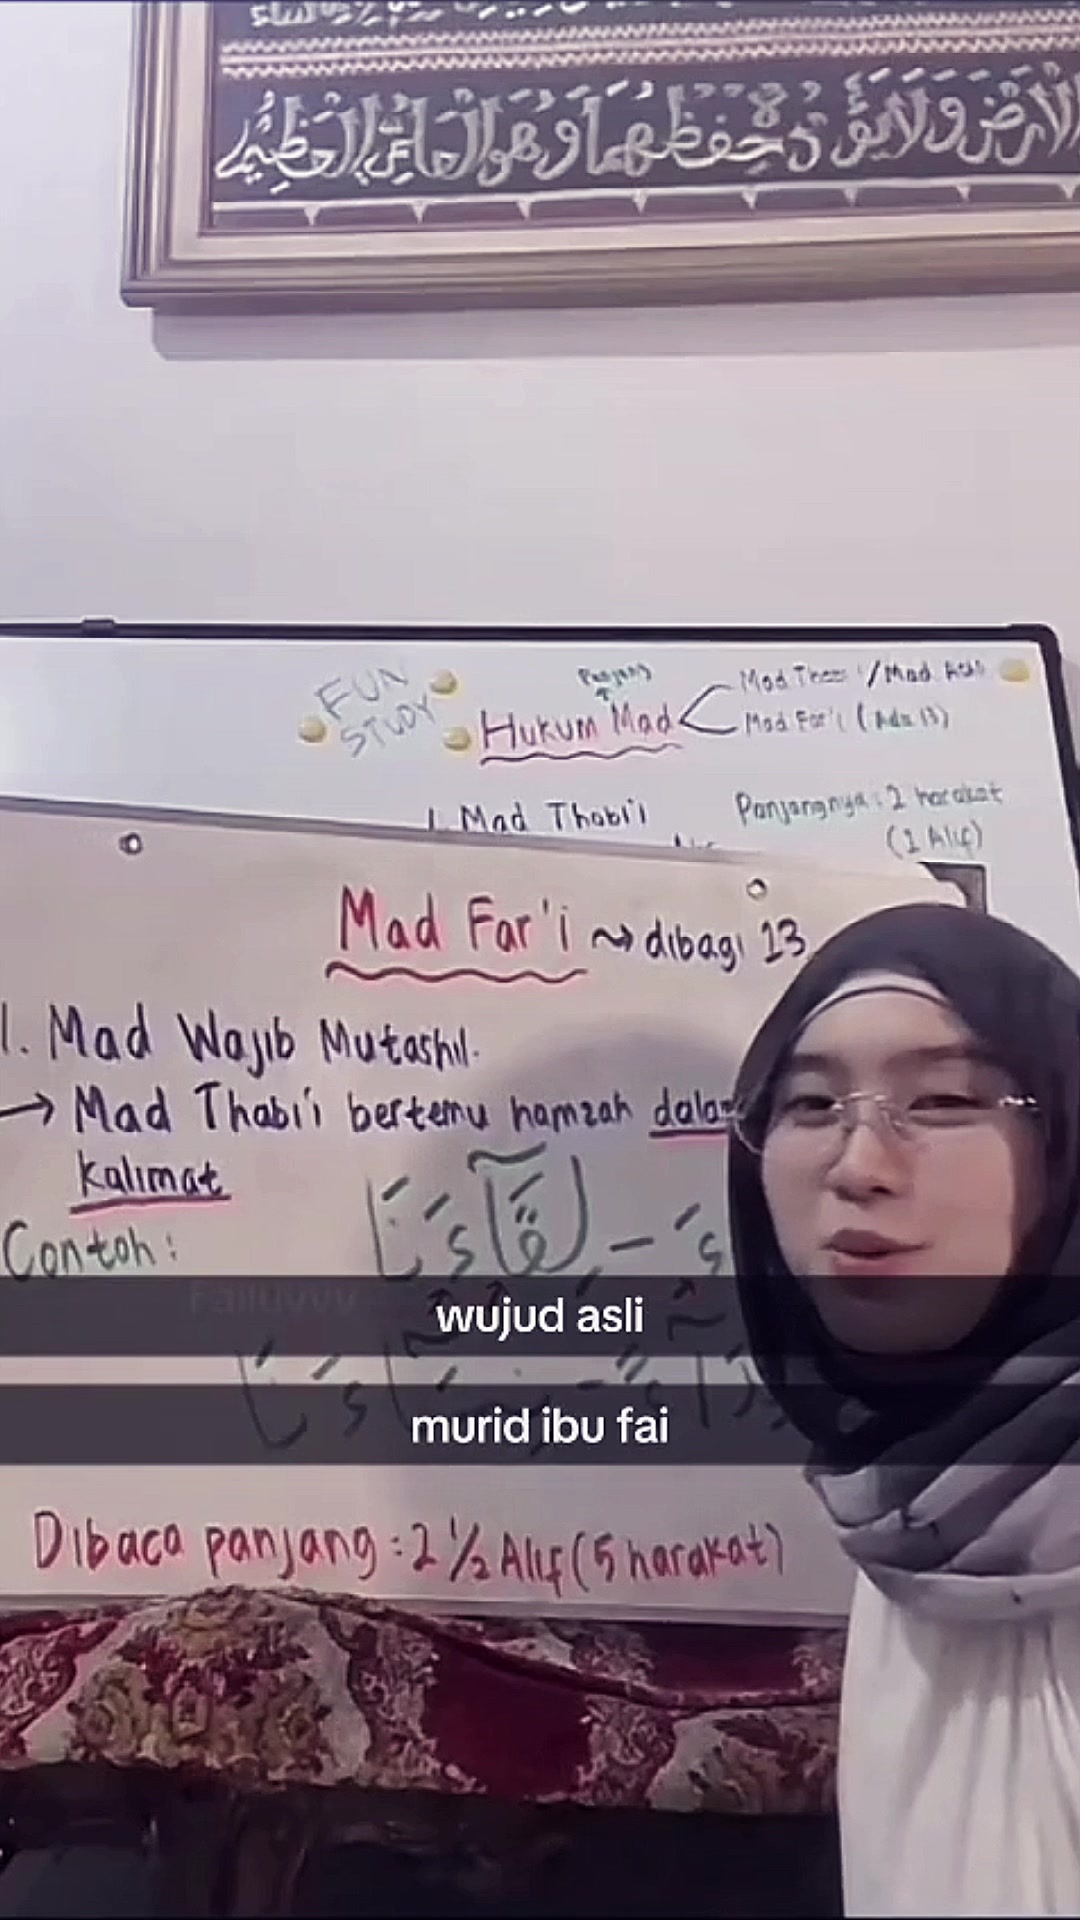 الأرض ولا يؤده حفظهما وهو العلي العظيم
FUN
STUDY
Panjang
Hukum Mad
Mad Far'i (Ada 13)
1. Mad Thobi'i
Panjangnya : 2 harakat
(1 Alif)
Mad Far'i ~> dibagi 13
1. Mad Wajib Mutashil.
→ Mad Thabi'i bertemu hamzah
kalimat
Contoh :
wujud asli
murid ibu fai
Dibaca panjang : 2 ½ Alif (5 harakat)